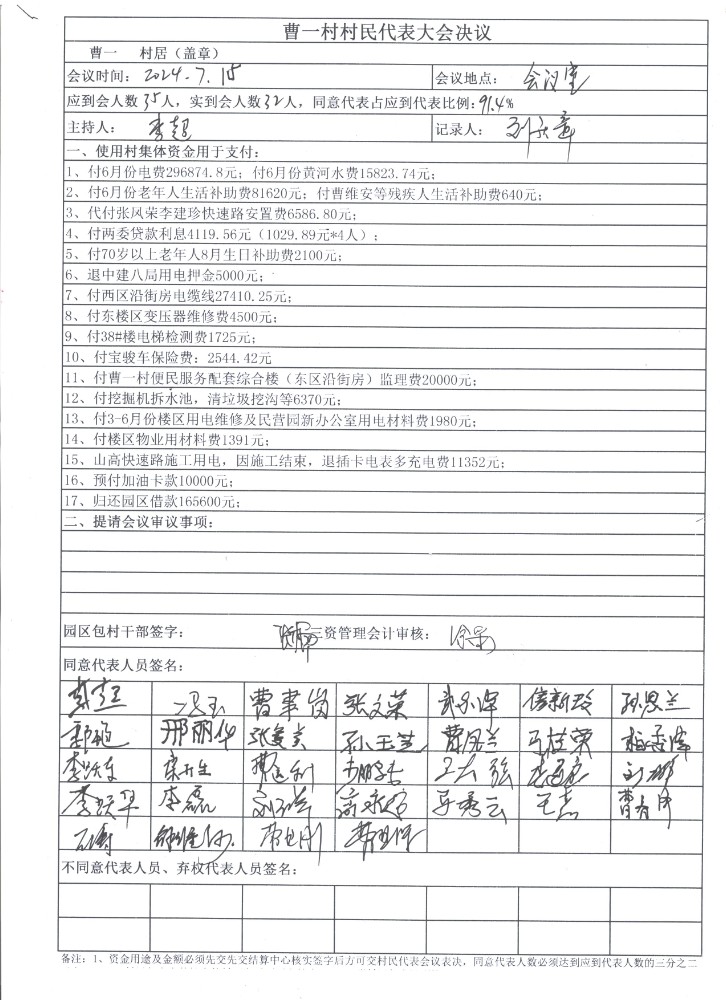 曹一村村民代表大会决议
曹一 村居（盖章）
会议时间： 2024.7.15 会议地点： 会议室
应到会人数35人，实到会人数32人，同意代表占应到代表比例：91.4%
主持人： 李超 记录人：
一、使用村集体资金用于支付：
1、付6月份电费296874.8元；付6月份黄河水费15823.74元；
2、付6月份老年人生活补助费81620元；付曹维安等残疾人生活补助费640元；
3、代付张风荣李建珍快速路安置费6586.80元；
4、付两委贷款利息4119.56元（1029.89元*4人）；
5、付70岁以上老年人8月生日补助费2100元；
6、退中建八局用电押金5000元；
7、付西区沿街房电缆线27410.25元；
8、付东楼区变压器维修费4500元；
9、付38#楼电梯检测费1725元；
10、付宝骏车保险费：2544.42元
11、付曹一村便民服务配套综合楼（东区沿街房）监理费20000元；
12、付挖掘机拆水池，清垃圾挖沟等6370元；
13、付3-6月份楼区用电维修及民营园新办公室用电材料费1980元；
14、付楼区物业用材料费1391元；
15、山高快速路施工用电，因施工结束，退插卡电表多充电费11352元；
16、预付加油卡款10000元；
17、归还园区借款165600元；
二、提请会议审议事项：
园区包村干部签字： 三资管理会计审核：
同意代表人员签名：
张文荣 孙恩兰
邢丽华 孙玉芝 曹凤兰 马桂荣
李跃华 李磊 马秀云 王杰
不同意代表人员、弃权代表人员签名：
备注：1、资金用途及金额必须先交先交结算中心核实签字后方可交村民代表会议表决，同意代表人数必须达到应到代表人数的三分之二